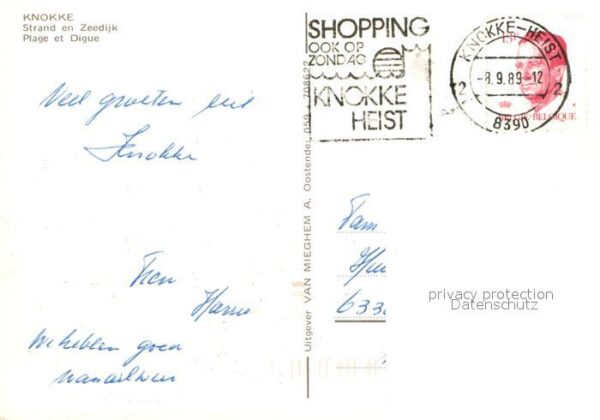 KNOKKE
Strand en Zeedijk
Plage et Digue
SHOPPING
OOK OP
ZONDAG
KNOKKE
HEIST
KNOKKE-HEIST
-8.9.89-12
2 2
8390
13F
BELGIË-BELGIQUE
Veel groeten uit
Knokke
We hebben goed
Uitgever VAN MIEGHEM A. Oostende, 059 - 708622
Fam
633
privacy protection
Datenschutz